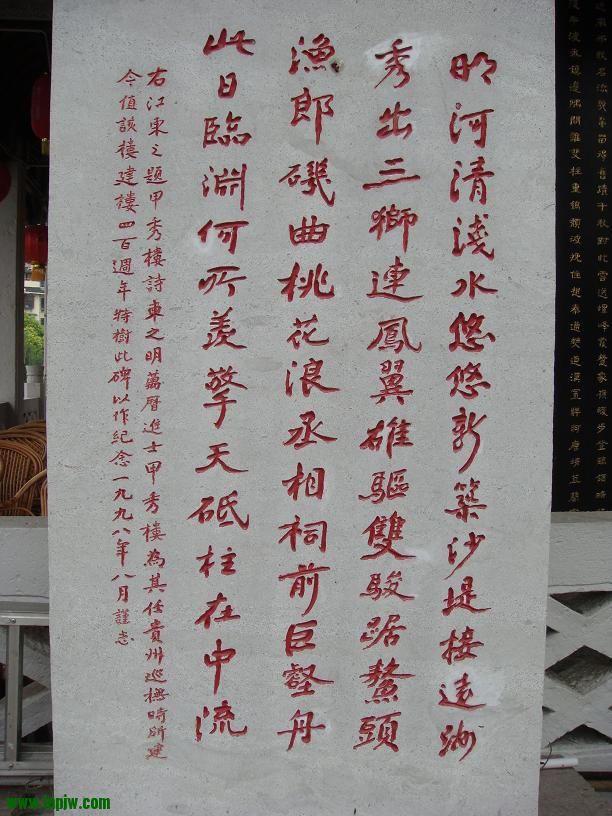 明河清淺水悠悠新築沙堤樓遠洲
秀出三獅連鳳翼雄驅雙駿踞鰲頭
漁郎磯曲桃花浪丞相祠前巨壑舟
此日臨淵何所羨擎天砥柱在中流
右江東之題甲秀樓詩東之明萬曆進士甲秀樓為其任貴州巡撫時所建
今值該樓建樓四百週年特樹此碑以作紀念一九九八年八月謹志